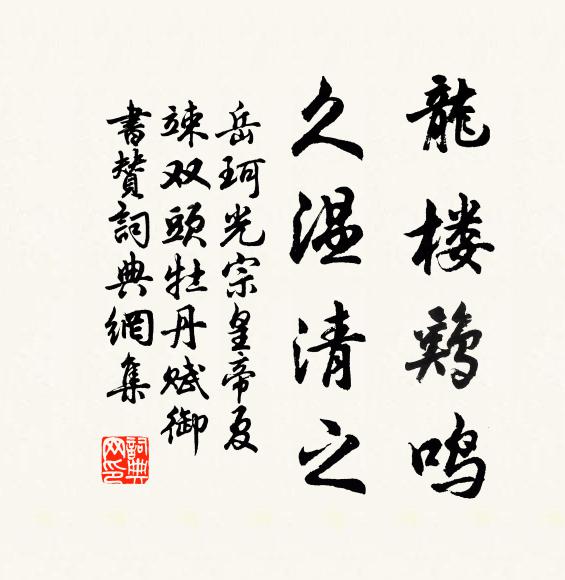 龍楼鶏鸣
久温清之
岳珂光宗皇帝夏
竦双頭牡丹赋御
書賛詞典網集
詞典网印